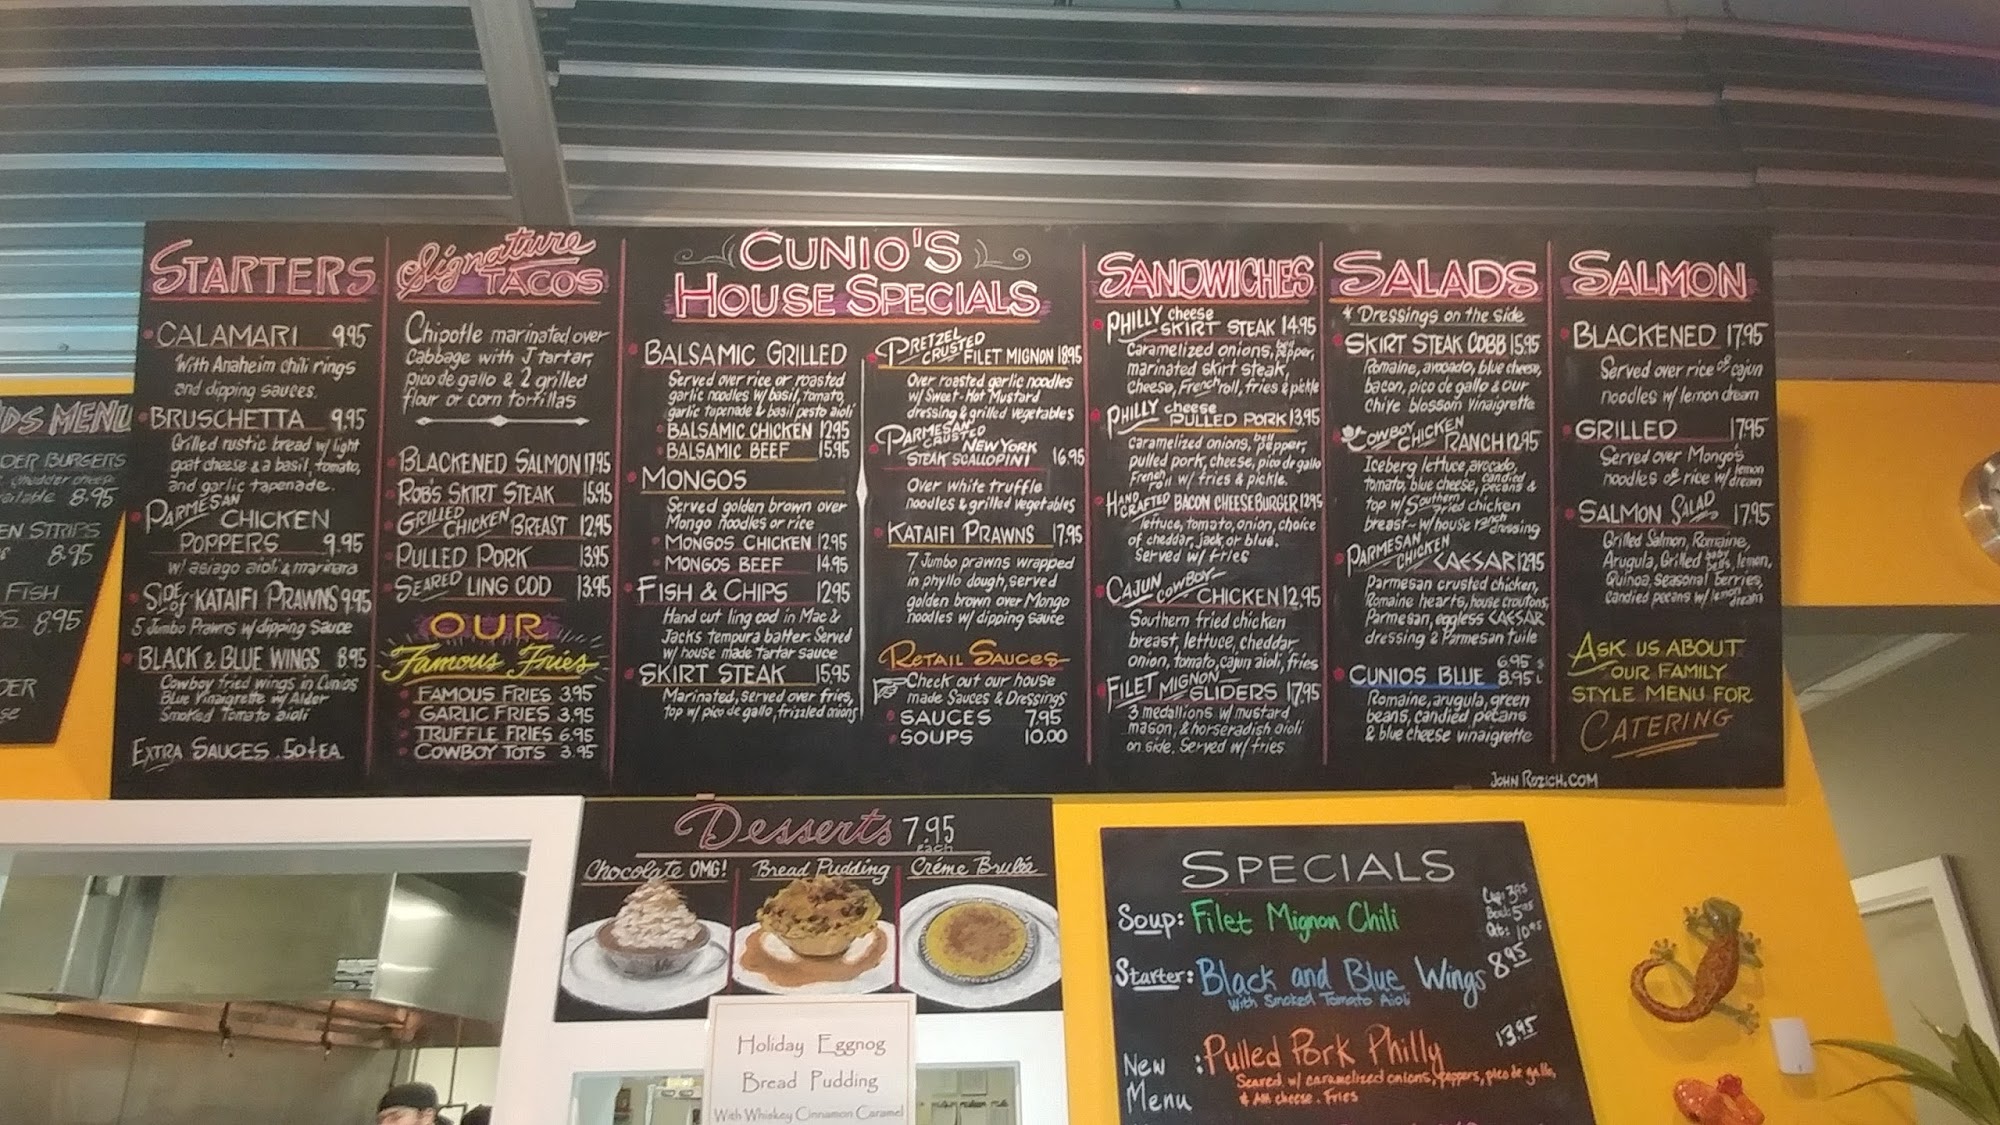 DS MENU
DER BURGERS
8.95
EN STRIPS
8.95
FISH
8.95
DER
STARTERS
CALAMARI 9.95
With Anaheim chili rings
and dipping sauces.
BRUSCHETTA 9.95
Grilled rustic bread w/ light
goat cheese & a basil, tomato,
and garlic tapenade.
PARMESAN CHICKEN
POPPERS 9.95
w/ asiago aioli & marinara
SIDE of KATAIFI PRAWNS 9.95
5 Jumbo Prawns w/ dipping Sauce
BLACK & BLUE WINGS 8.95
Cowboy fried wings in Cunios
Blue Vinaigrette w/ Alder
Smoked Tomato aioli
EXTRA SAUCES .50¢ EA.
Signature TACOS
Chipotle marinated over
Cabbage with J tartar,
pico de gallo & 2 grilled
flour or corn tortillas
BLACKENED SALMON 17.95
ROB'S SKIRT STEAK 15.95
GRILLED CHICKEN BREAST 12.95
PULLED PORK 13.95
SEARED LING COD 13.95
OUR
Famous Fries
FAMOUS FRIES 3.95
GARLIC FRIES 3.95
TRUFFLE FRIES 6.95
COWBOY TOTS 3.95
CUNIO'S
HOUSE SPECIALS
BALSAMIC GRILLED
Served over rice or roasted
garlic noodles w/ basil, tomato,
garlic tapenade & basil pesto aioli
BALSAMIC CHICKEN 12.95
BALSAMIC BEEF 15.95
MONGOS
Served golden brown over
Mongo noodles or rice
MONGOS CHICKEN 12.95
MONGOS BEEF 14.95
FISH & CHIPS 12.95
Hand cut ling cod in Mac &
Jacks tempura batter. Served
w/ house made tartar sauce
SKIRT STEAK 15.95
Marinated, served over fries,
top w/ pico de gallo, frizzled onions
PRETZEL CRUSTED FILET MIGNON 18.95
Over roasted garlic noodles
w/ Sweet-Hot Mustard
dressing & grilled vegetables
PARMESAN CRUSTED NEW YORK
STEAK SCALLOPINI 16.95
Over white truffle
noodles & grilled vegetables
KATAIFI PRAWNS 17.95
7 Jumbo prawns wrapped
in phyllo dough, served
golden brown over Mongo
noodles w/ dipping sauce
RETAIL SAUCES
Check out our house
made Sauces & Dressings
SAUCES 7.95
SOUPS 10.00
SANDWICHES
PHILLY cheese SKIRT STEAK 14.95
Caramelized onions, bell pepper,
marinated skirt steak,
cheese, French roll, fries & pickle
PHILLY cheese PULLED PORK 13.95
caramelized onions, bell pepper,
pulled pork, cheese, pico de gallo
French roll w/ fries & pickle.
HAND CRAFTED BACON CHEESEBURGER 12.95
lettuce, tomato, onion, choice
of cheddar, jack, or blue.
Served w/ fries
CAJUN COWBOY CHICKEN 12.95
Southern fried chicken
breast, lettuce, cheddar
onion, tomato, cajun aioli, fries
FILET MIGNON SLIDERS 17.95
3 medallions w/ mustard
mason, & horseradish aioli
on side. Served w/ fries
SALADS
* Dressings on the side
SKIRT STEAK COBB 15.95
Romaine, avocado, blue cheese,
bacon, pico de gallo & our
chive blossom vinaigrette
COWBOY CHICKEN RANCH 12.95
Iceberg lettuce, avocado,
tomato, blue cheese, candied pecans &
top w/ Southern fried chicken
breast~ w/ house ranch dressing
PARMESAN CHICKEN CAESAR 12.95
Parmesan crusted chicken,
Romaine hearts, house croutons,
Parmesan, eggless CAESAR
dressing & Parmesan tuile
CUNIOS BLUE 6.95 s
8.95 L
Romaine, arugula, green
beans, candied pecans
& blue cheese vinaigrette
SALMON
BLACKENED 17.95
Served over rice or cajun
noodles w/ lemon dream
GRILLED 17.95
Served over Mongo's
noodles or rice w/ lemon dream
SALMON SALAD 17.95
Grilled Salmon, Romaine,
Arugula, Grilled baby bells, lemon,
Quinoa, seasonal berries,
candied pecans w/ lemon dream
ASK US ABOUT
OUR FAMILY
STYLE MENU FOR
CATERING
JOHN ROZICH.COM
Desserts 7.95
each
Chocolate OMG! Bread Pudding Créme Brulée
Holiday Eggnog
Bread Pudding
With Whiskey Cinnamon Caramel
SPECIALS
Soup: Filet Mignon Chili
Cup: 3.95
Bowl: 5.95
Qt: 10.95
Starter: Black and Blue Wings 8.95
With Smoked Tomato Aioli
New Menu : Pulled Pork Philly 13.95
Seared w/ caramelized onions, peppers, pico de gallo,
& AM cheese. Fries